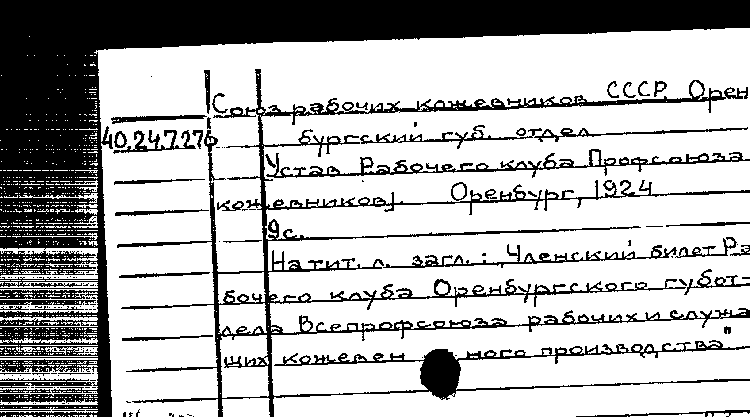 Союз рабочих кожевников СССР. Орен
40.24.7.276 бургский губ. отдел
Устав Рабочего клуба Профсоюза
кожевников]. Оренбург, 1924
9с.
На тит. л. загл.: „Членский билет Ра
бочего клуба Оренбургского губот-
дела Всепрофсоюза рабочих и служа
щих кожевен ного производства"